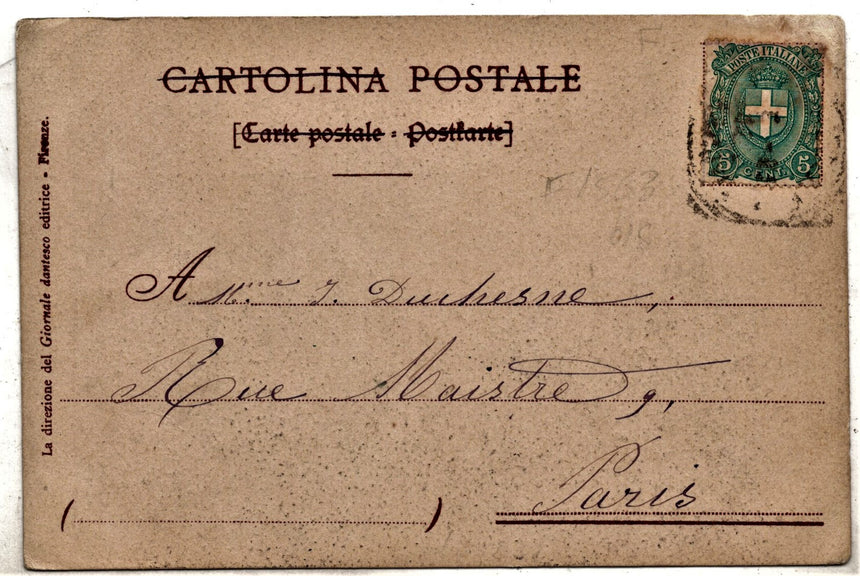 CARTOLINA POSTALE
[Carte postale - Postkarte]
POSTE ITALIANE
5 CENT. 5
A Mme J. Duchesne,
Rue Maistre 9,
Paris
( )
La direzione del Giornale dantesco editrice - Firenze.